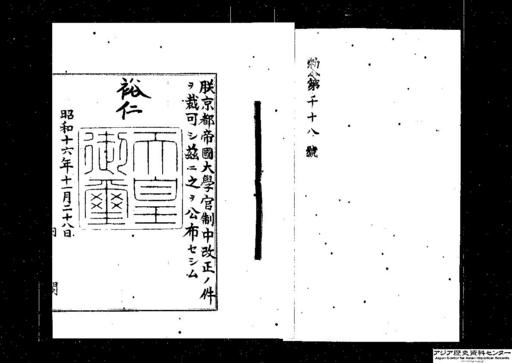 勅令第千十八號
朕京都帝國大學官制中改正ノ件
ヲ裁可シ茲ニ之ヲ公布セシム
裕仁
天皇
御璽
昭和十六年十一月二十八日
アジア歴史資料センター
Japan Center for Asian Historical Records